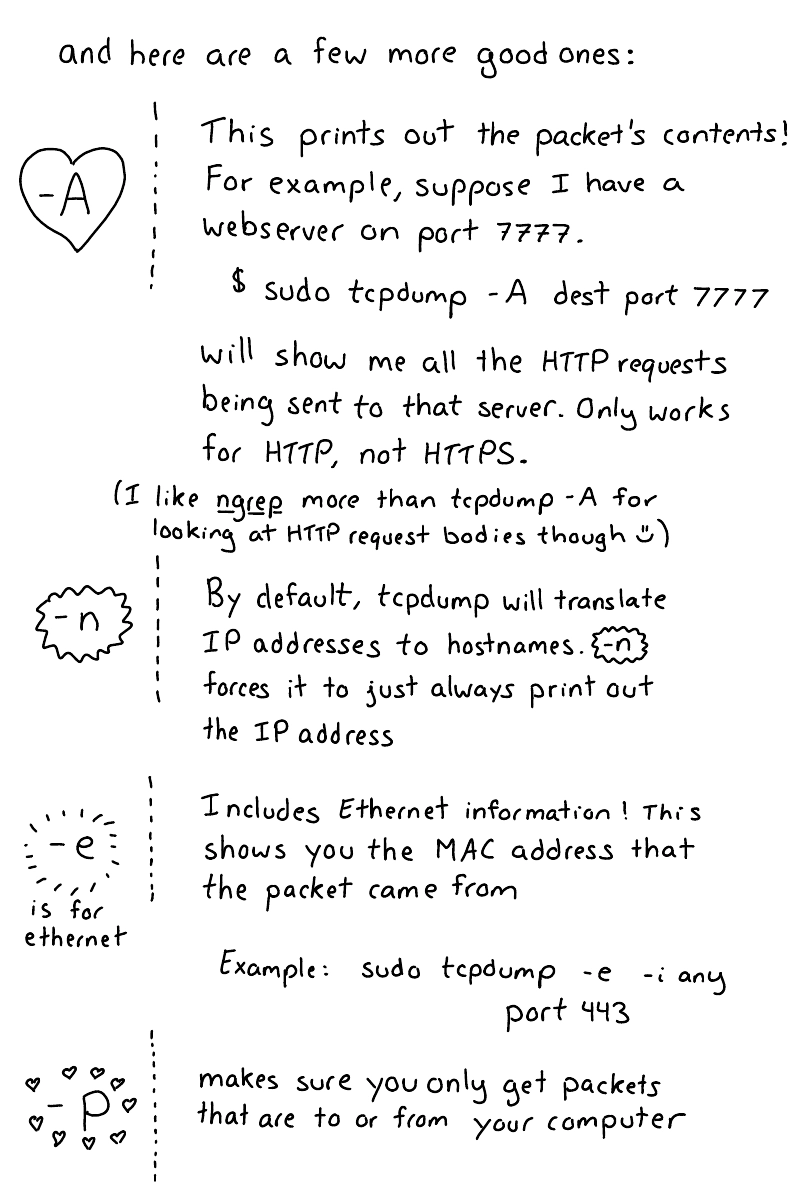 and here are a few more good ones:
-A
This prints out the packet's contents!
For example, suppose I have a
webserver on port 7777.
$ sudo tcpdump -A dest port 7777
will show me all the HTTP requests
being sent to that server. Only works
for HTTP, not HTTPS.
(I like ngrep more than tcpdump -A for
looking at HTTP request bodies though ü)
-n
By default, tcpdump will translate
IP addresses to hostnames. -n
forces it to just always print out
the IP address
-e
is for
ethernet
Includes Ethernet information! This
shows you the MAC address that
the packet came from
Example: sudo tcpdump -e -i any
port 443
-p
makes sure you only get packets
that are to or from your computer